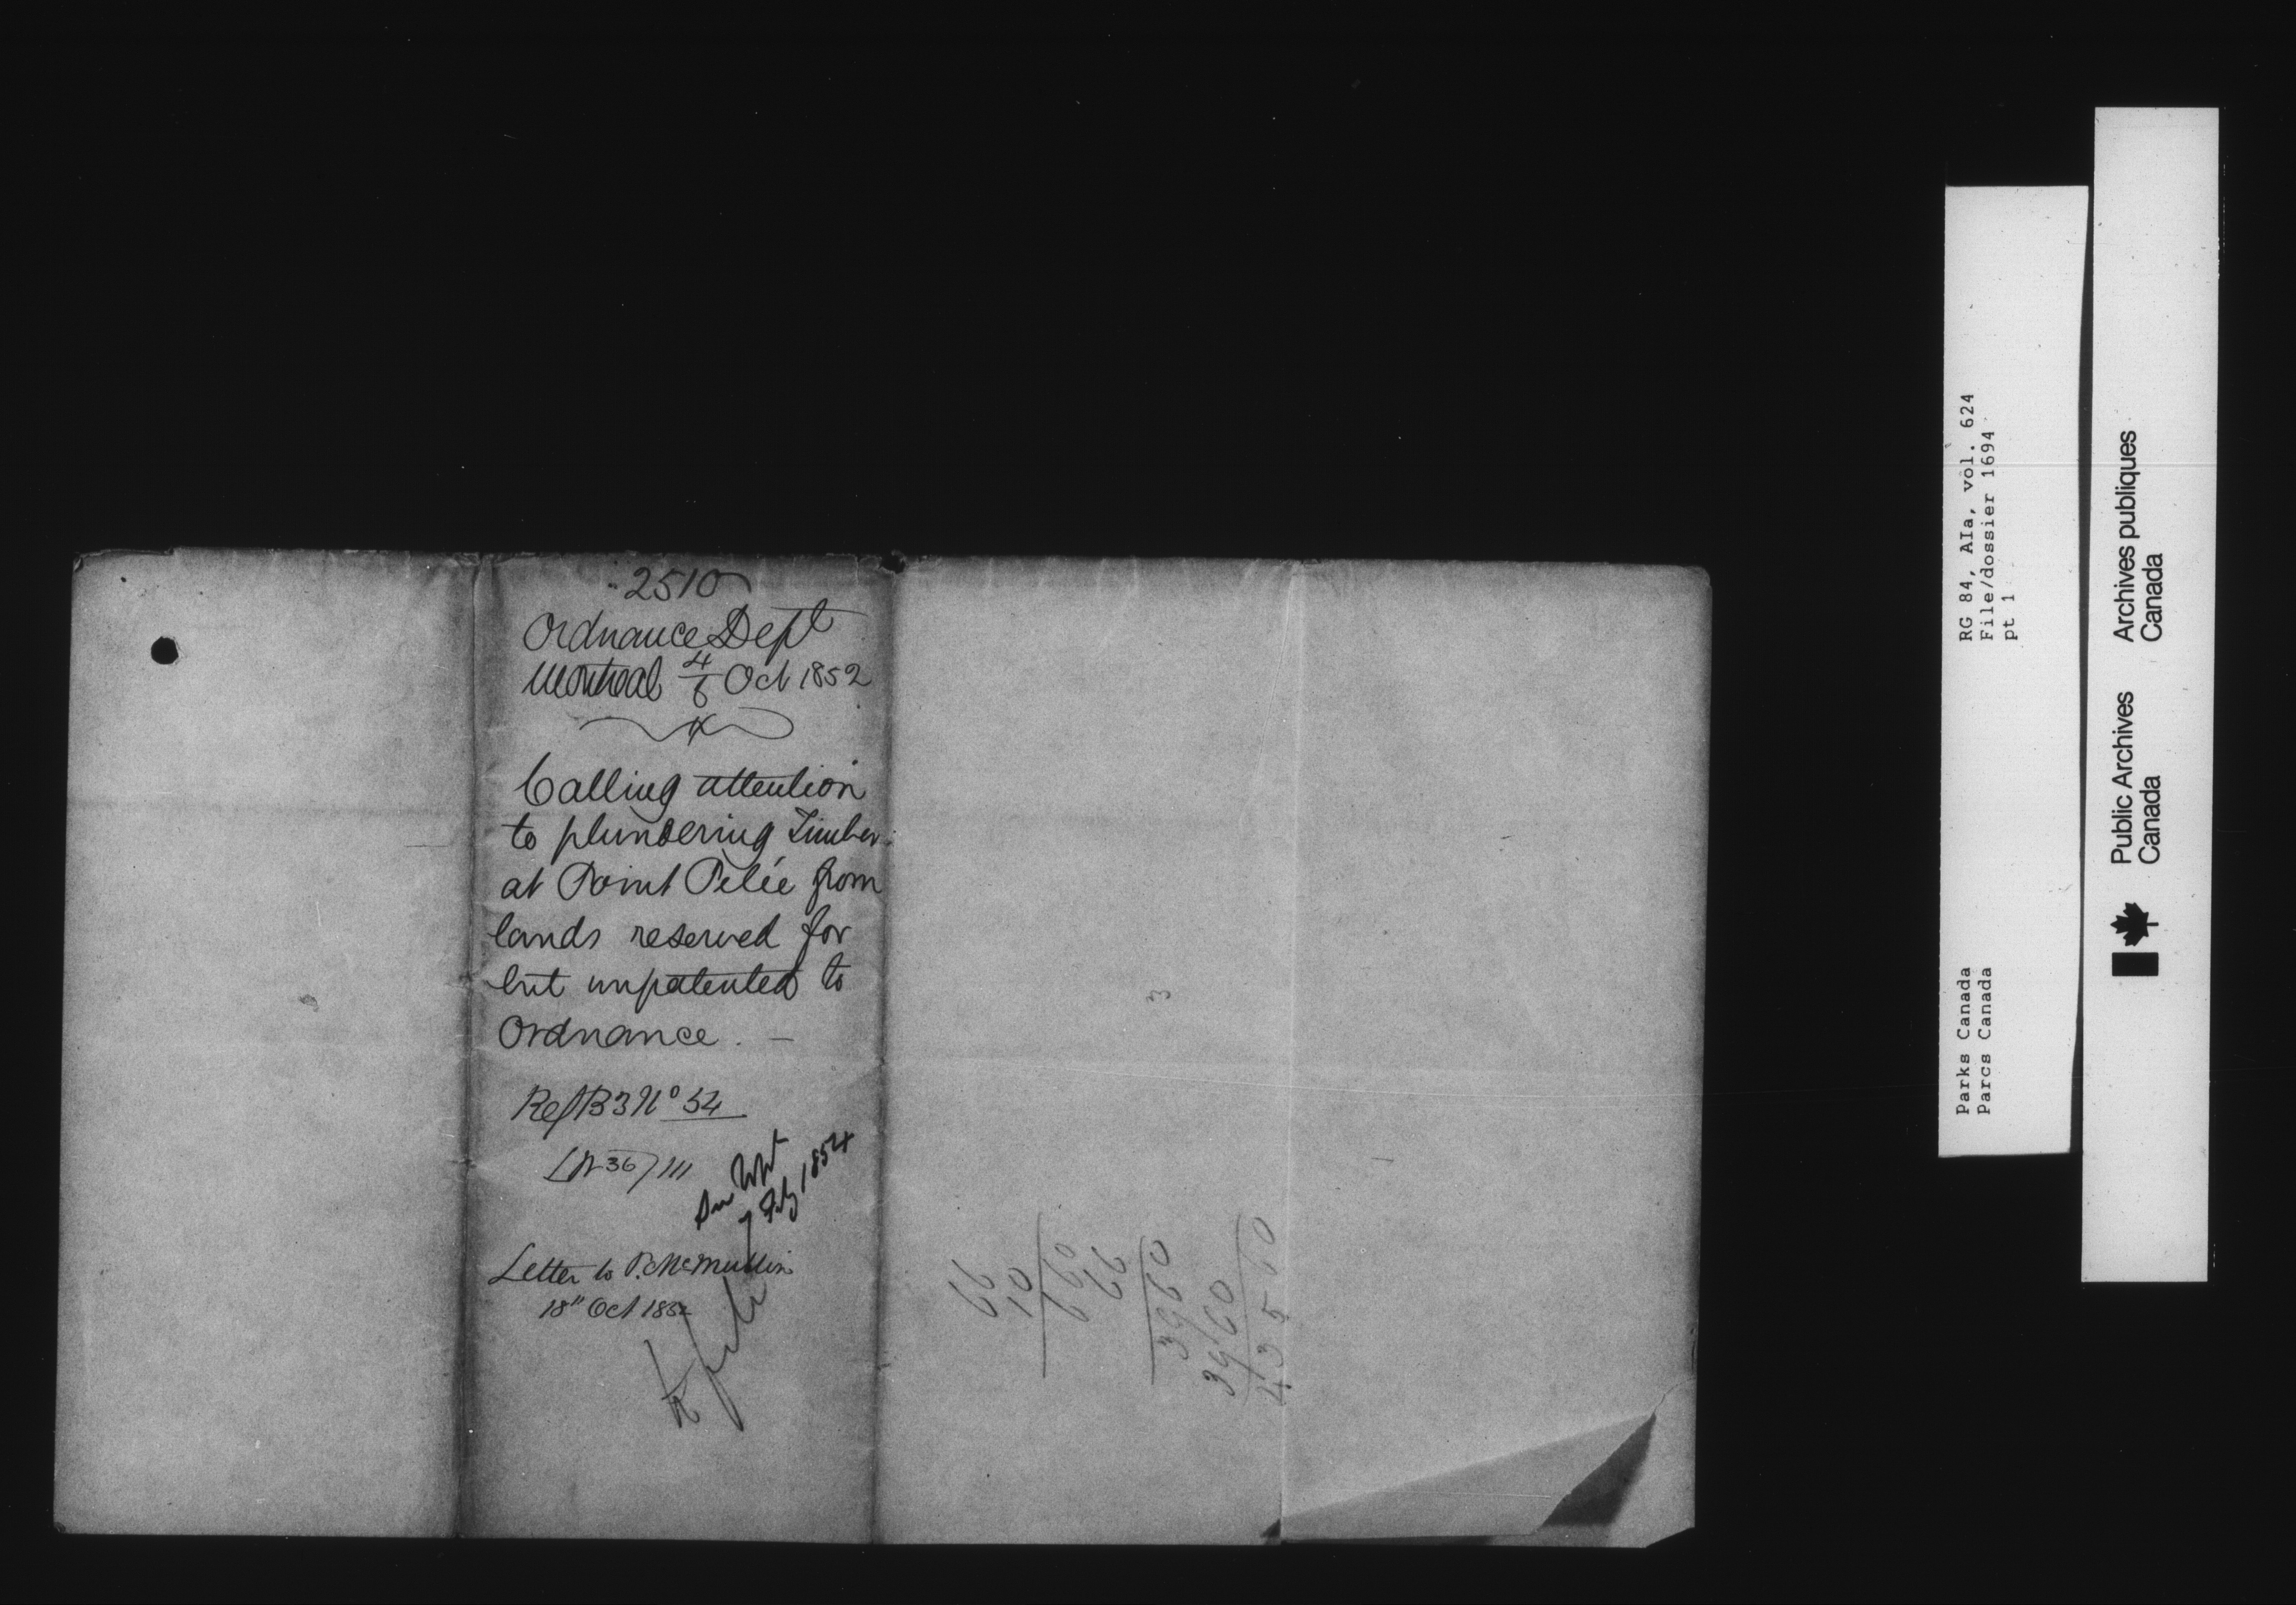 2510
Ordnance Dept
Montreal 4/6 Oct 1852
Calling attention
to plundering Timber
at Point Pelée from
lands reserved for
but unpatented to
Ordnance. —
Ref B3 No 54
36/111
7 Feby 1854
Letter to P. McMullin
18" Oct 1852
3
66
10
660
66
3960
3960
43560
RG 84, AIa, vol. 624
File/dossier 1694
pt 1
Parks Canada
Parcs Canada
Public Archives
Canada
Archives publiques
Canada